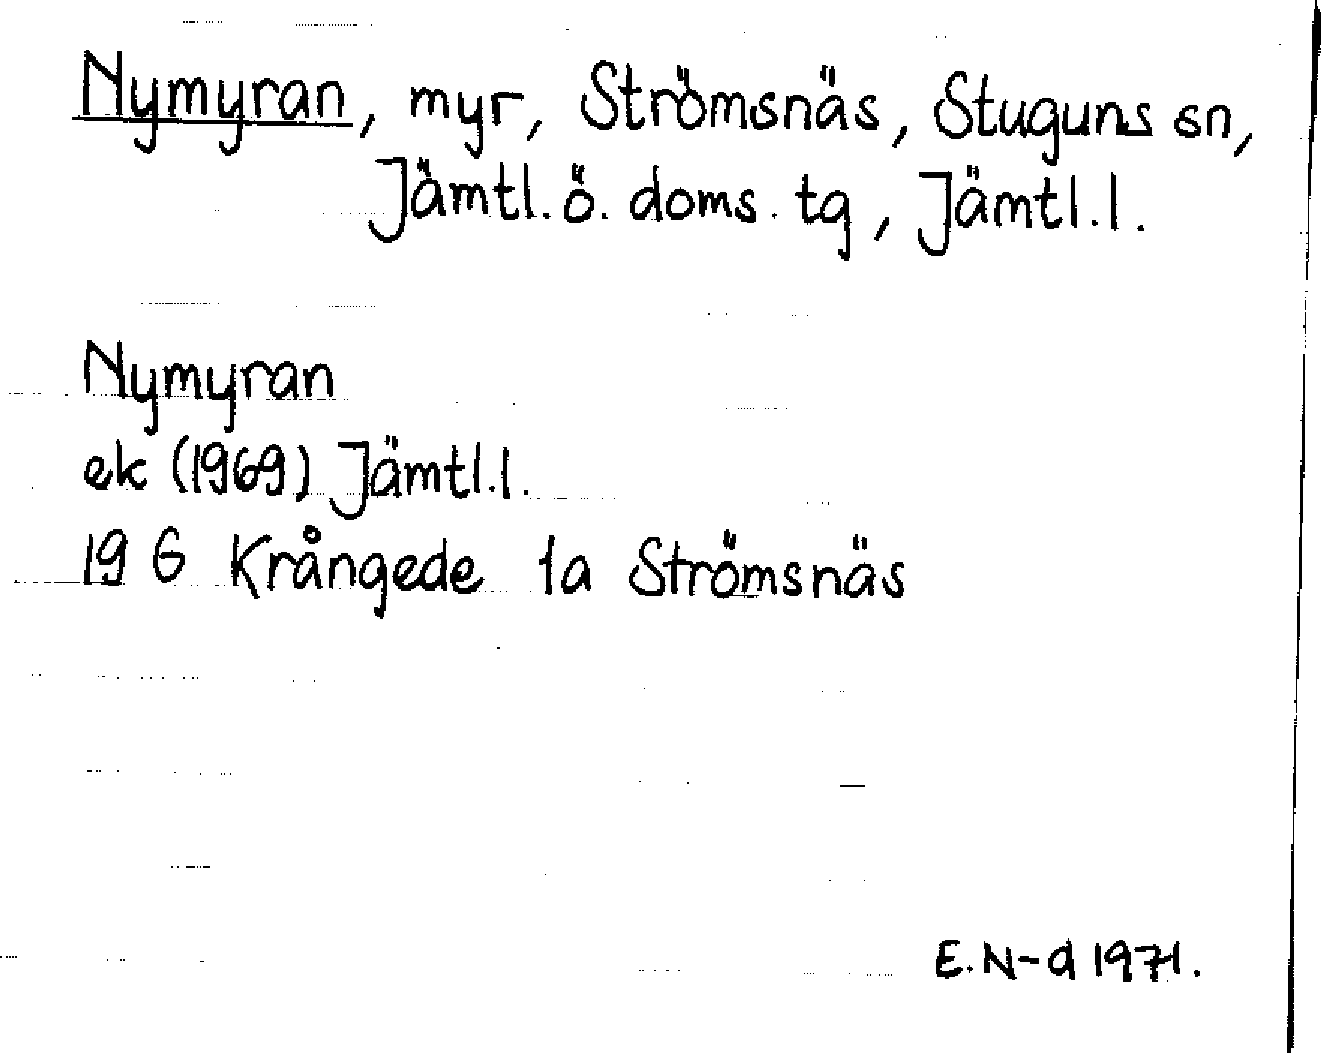 Nymyran, myr, Strömsnäs, Stuguns sn,
Jämtl. ö. doms. tg, Jämtl. l.
Nymyran
ek (1969) Jämtl. l.
19 G Krångede 1a Strömsnäs
E. N-d 1971.